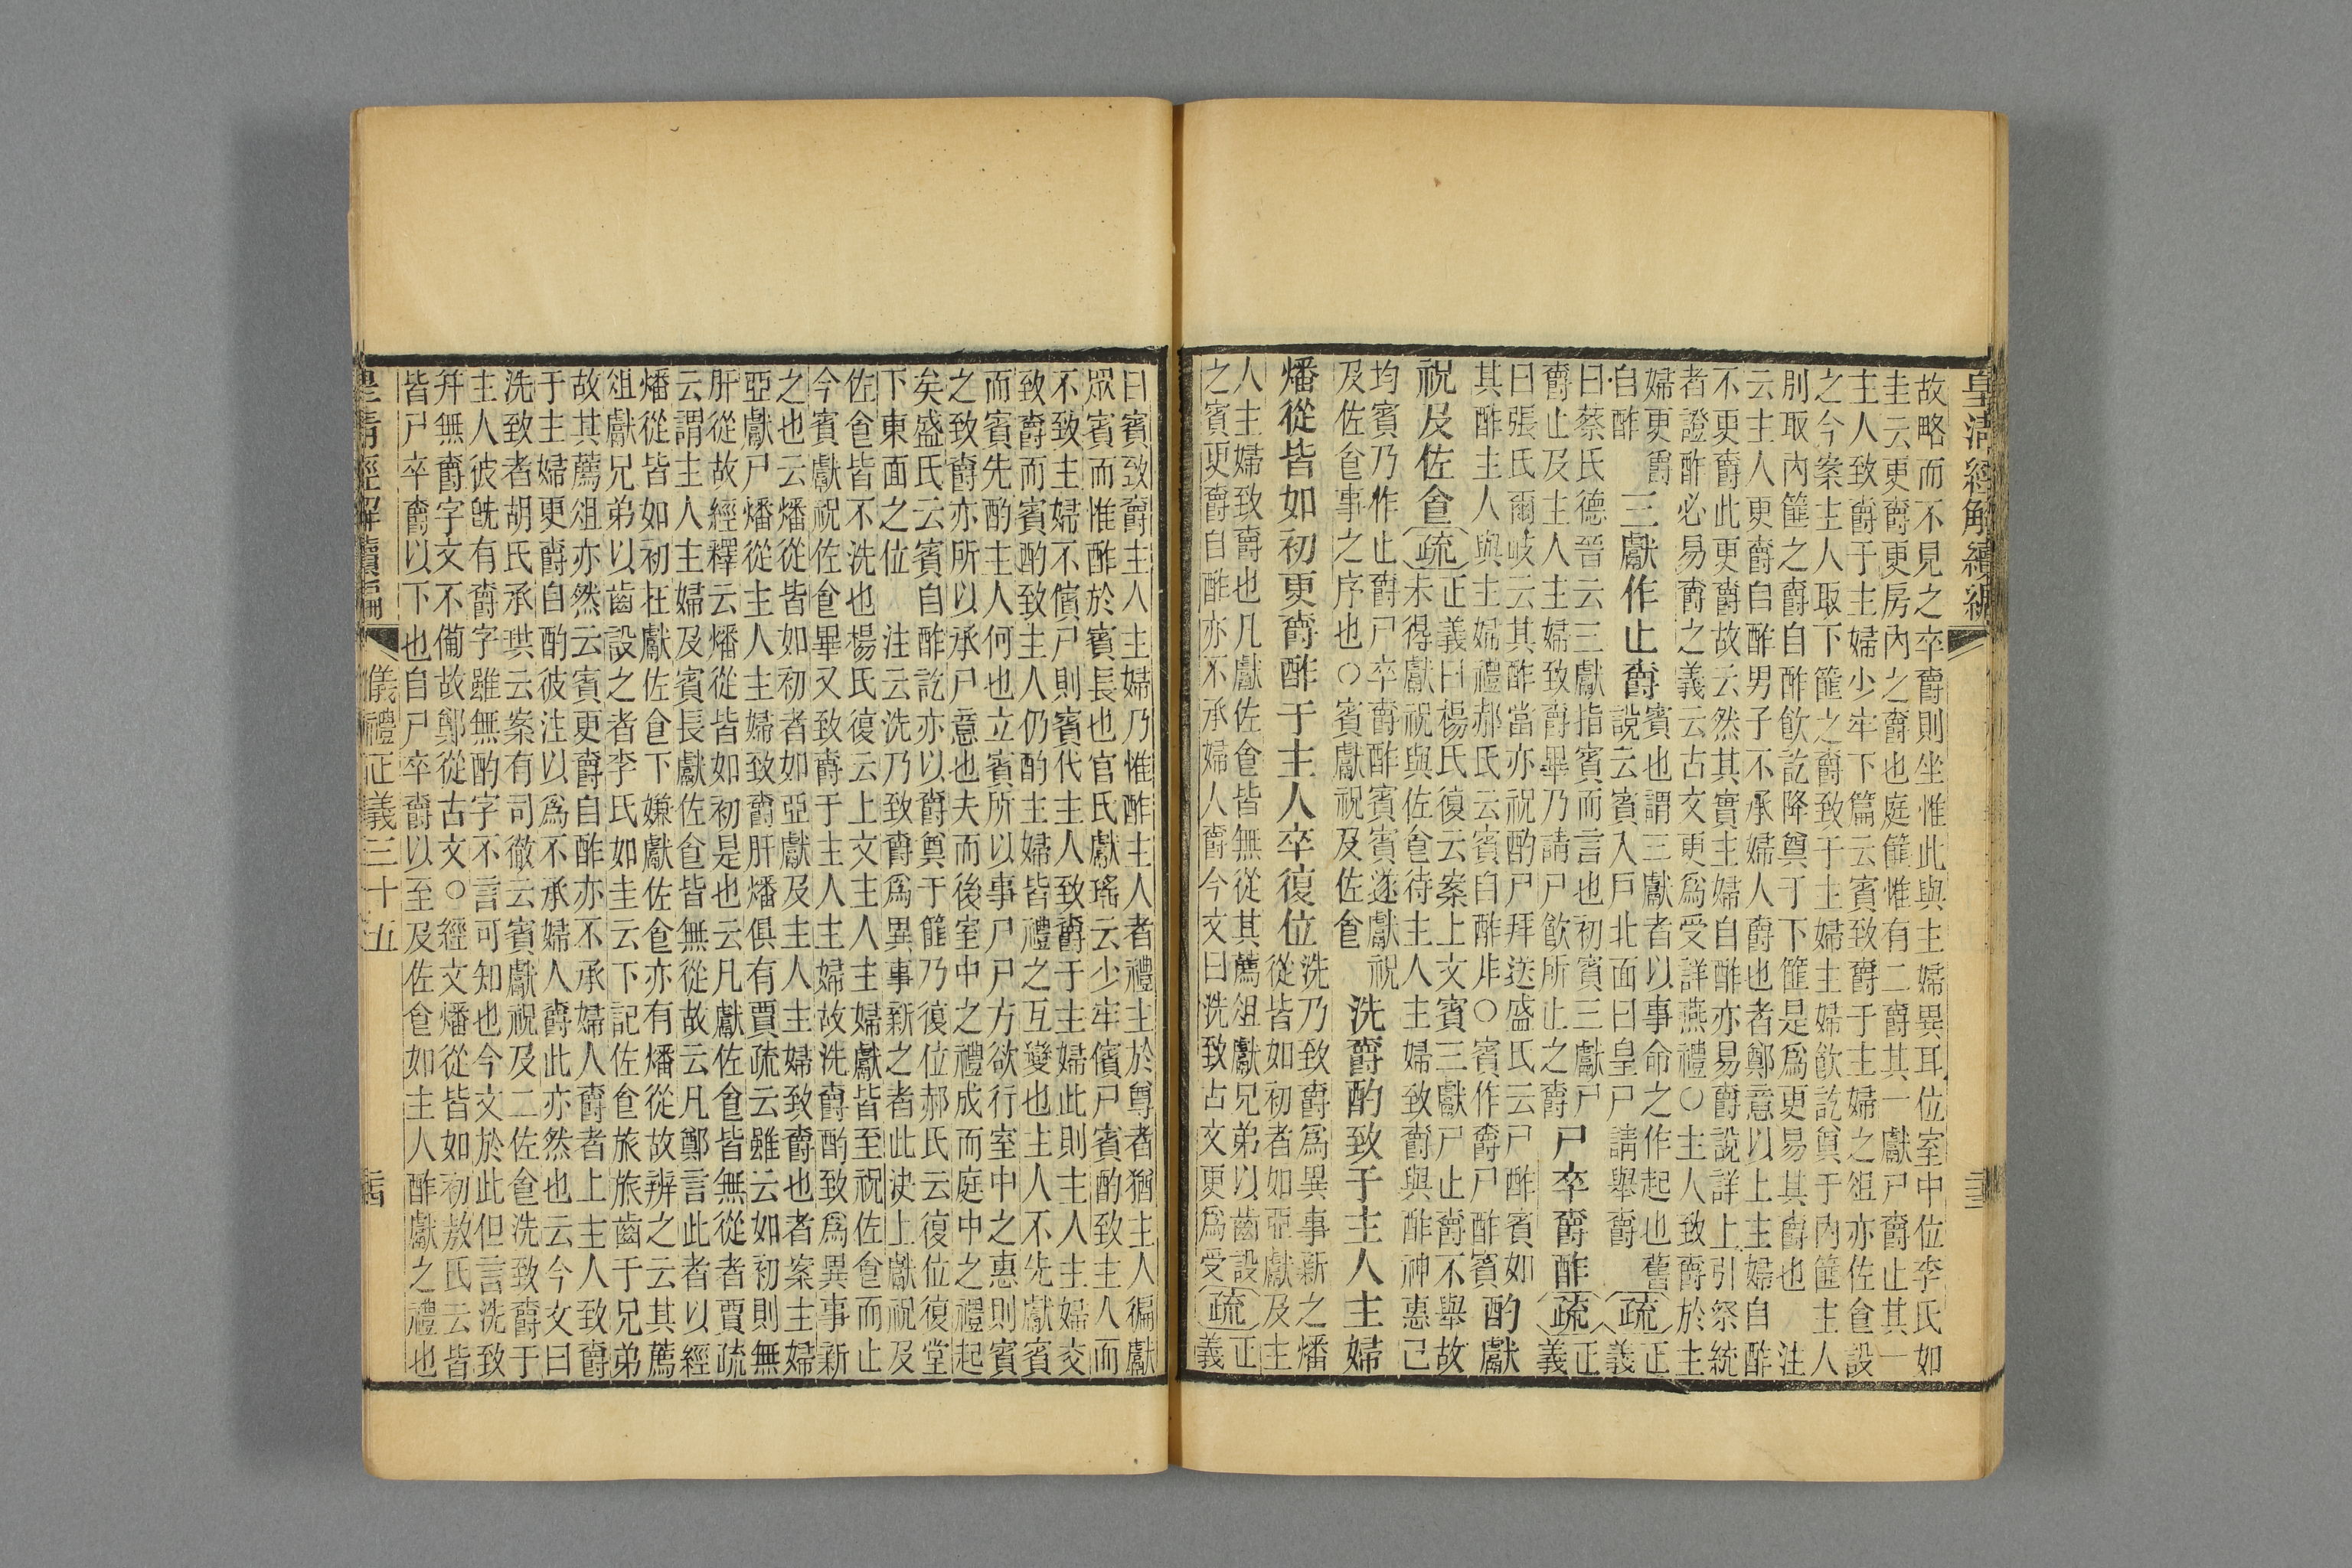 皇清經解續編
三三
故略而不見之卒爵則坐惟此與主婦異耳位室中位李氏如
圭云更爵更房內之爵也庭篚惟有二爵其一獻尸爵止其一
主人致爵于主婦少牢下篇云賓致爵于主婦之俎亦佐食設
之今案主人取下篚之爵致于主婦主婦飲訖奠于內篚主人
別取內篚之爵自酢飲訖降奠于下篚是爲更易其爵也 注
云主人更爵自酢男子不承婦人爵也者鄭意以上主婦自酢
不更爵此更爵故云然其實主婦自酢亦易爵說詳上引祭統
者證酢必易爵之義云古文更爲受詳燕禮○主人致爵於主
婦更爵
自酢
三獻作止爵
賓也謂三獻者以事命之作起也舊
說云賓入戶北面曰皇尸請舉爵
疏
正
義
曰蔡氏德晉云三獻指賓而言也初賓三獻尸
爵止及主人主婦致爵畢乃請尸飲所止之爵
尸卒爵酢
疏
正
義
曰張氏爾岐云其酢當亦祝酌尸拜送盛氏云尸酢賓如
其酢主人與主婦禮郝氏云賓自酢非○賓作爵尸酢賓
酌獻
祝及佐食
疏
正義曰楊氏復云案上文賓三獻尸止爵不舉故
未得獻祝與佐食待主人主婦致爵與酢神惠已
均賓乃作止爵尸卒爵酢賓賓遂獻祝
及佐食事之序也○賓獻祝及佐食
洗爵酌致于主人主婦
燔從皆如初更爵酢于主人卒復位
洗乃致爵爲異事新之燔
從皆如初者如亞獻及主
人主婦致爵也凡獻佐食皆無從其薦俎獻兄弟以齒設
之賓更爵自酢亦不承婦人爵今文曰洗致古文更爲受
疏
正
義
曰賓致爵主人主婦乃惟酢主人者禮主於尊者猶主人徧獻
眾賓而惟酢於賓長也官氏獻瑤云少牢儐尸賓酌致主人而
不致主婦不儐尸則賓代主人致爵于主婦此則主人主婦交
致爵而賓酌致主人仍酌主婦皆禮之互變也主人不先獻賓
而賓先酌主人何也立賓所以事尸尸方欲行室中之惠則賓
之致爵亦所以承尸意也夫而後室中之禮成而庭中之禮起
矣盛氏云賓自酢訖亦以爵奠于篚乃復位郝氏云復位復堂
下東面之位 注云洗乃致爵爲異事新之者此決上獻祝及
佐食皆不洗也楊氏復云上文主人主婦獻皆至祝佐食而止
今賓獻祝佐食畢又致爵于主人主婦故洗爵酌致爲異事新
之也云燔從皆如初者如亞獻及主人主婦致爵也者案主婦
亞獻尸燔從主人主婦致爵肝燔俱有賈疏云雖云如初則無
肝從故經釋云燔從皆如初是也云凡獻佐食皆無從者賈疏
云謂主人主婦及賓長獻佐食皆無從故云凡鄭言此者以經
燔從皆如初在獻佐食下嫌獻佐食亦有燔從故辨之云其薦
俎獻兄弟以齒設之者李氏如圭云下記佐食旅旅齒于兄弟
故其薦俎亦然云賓更爵自酢亦不承婦人爵者上主人致爵
于主婦更爵自酌彼注以爲不承婦人爵此亦然也云今文曰
洗致者胡氏承珙云案有司徹云賓獻祝及二佐食洗致爵于
主人彼旣有爵字雖無酌字不言可知也今文於此但言洗致
幷無爵字文不備故鄭從古文○經文燔從皆如初敖氏云皆
皆尸卒爵以下也自尸卒爵以至及佐食如主人酢獻之禮也
皇清經解續編
儀禮正義三十五